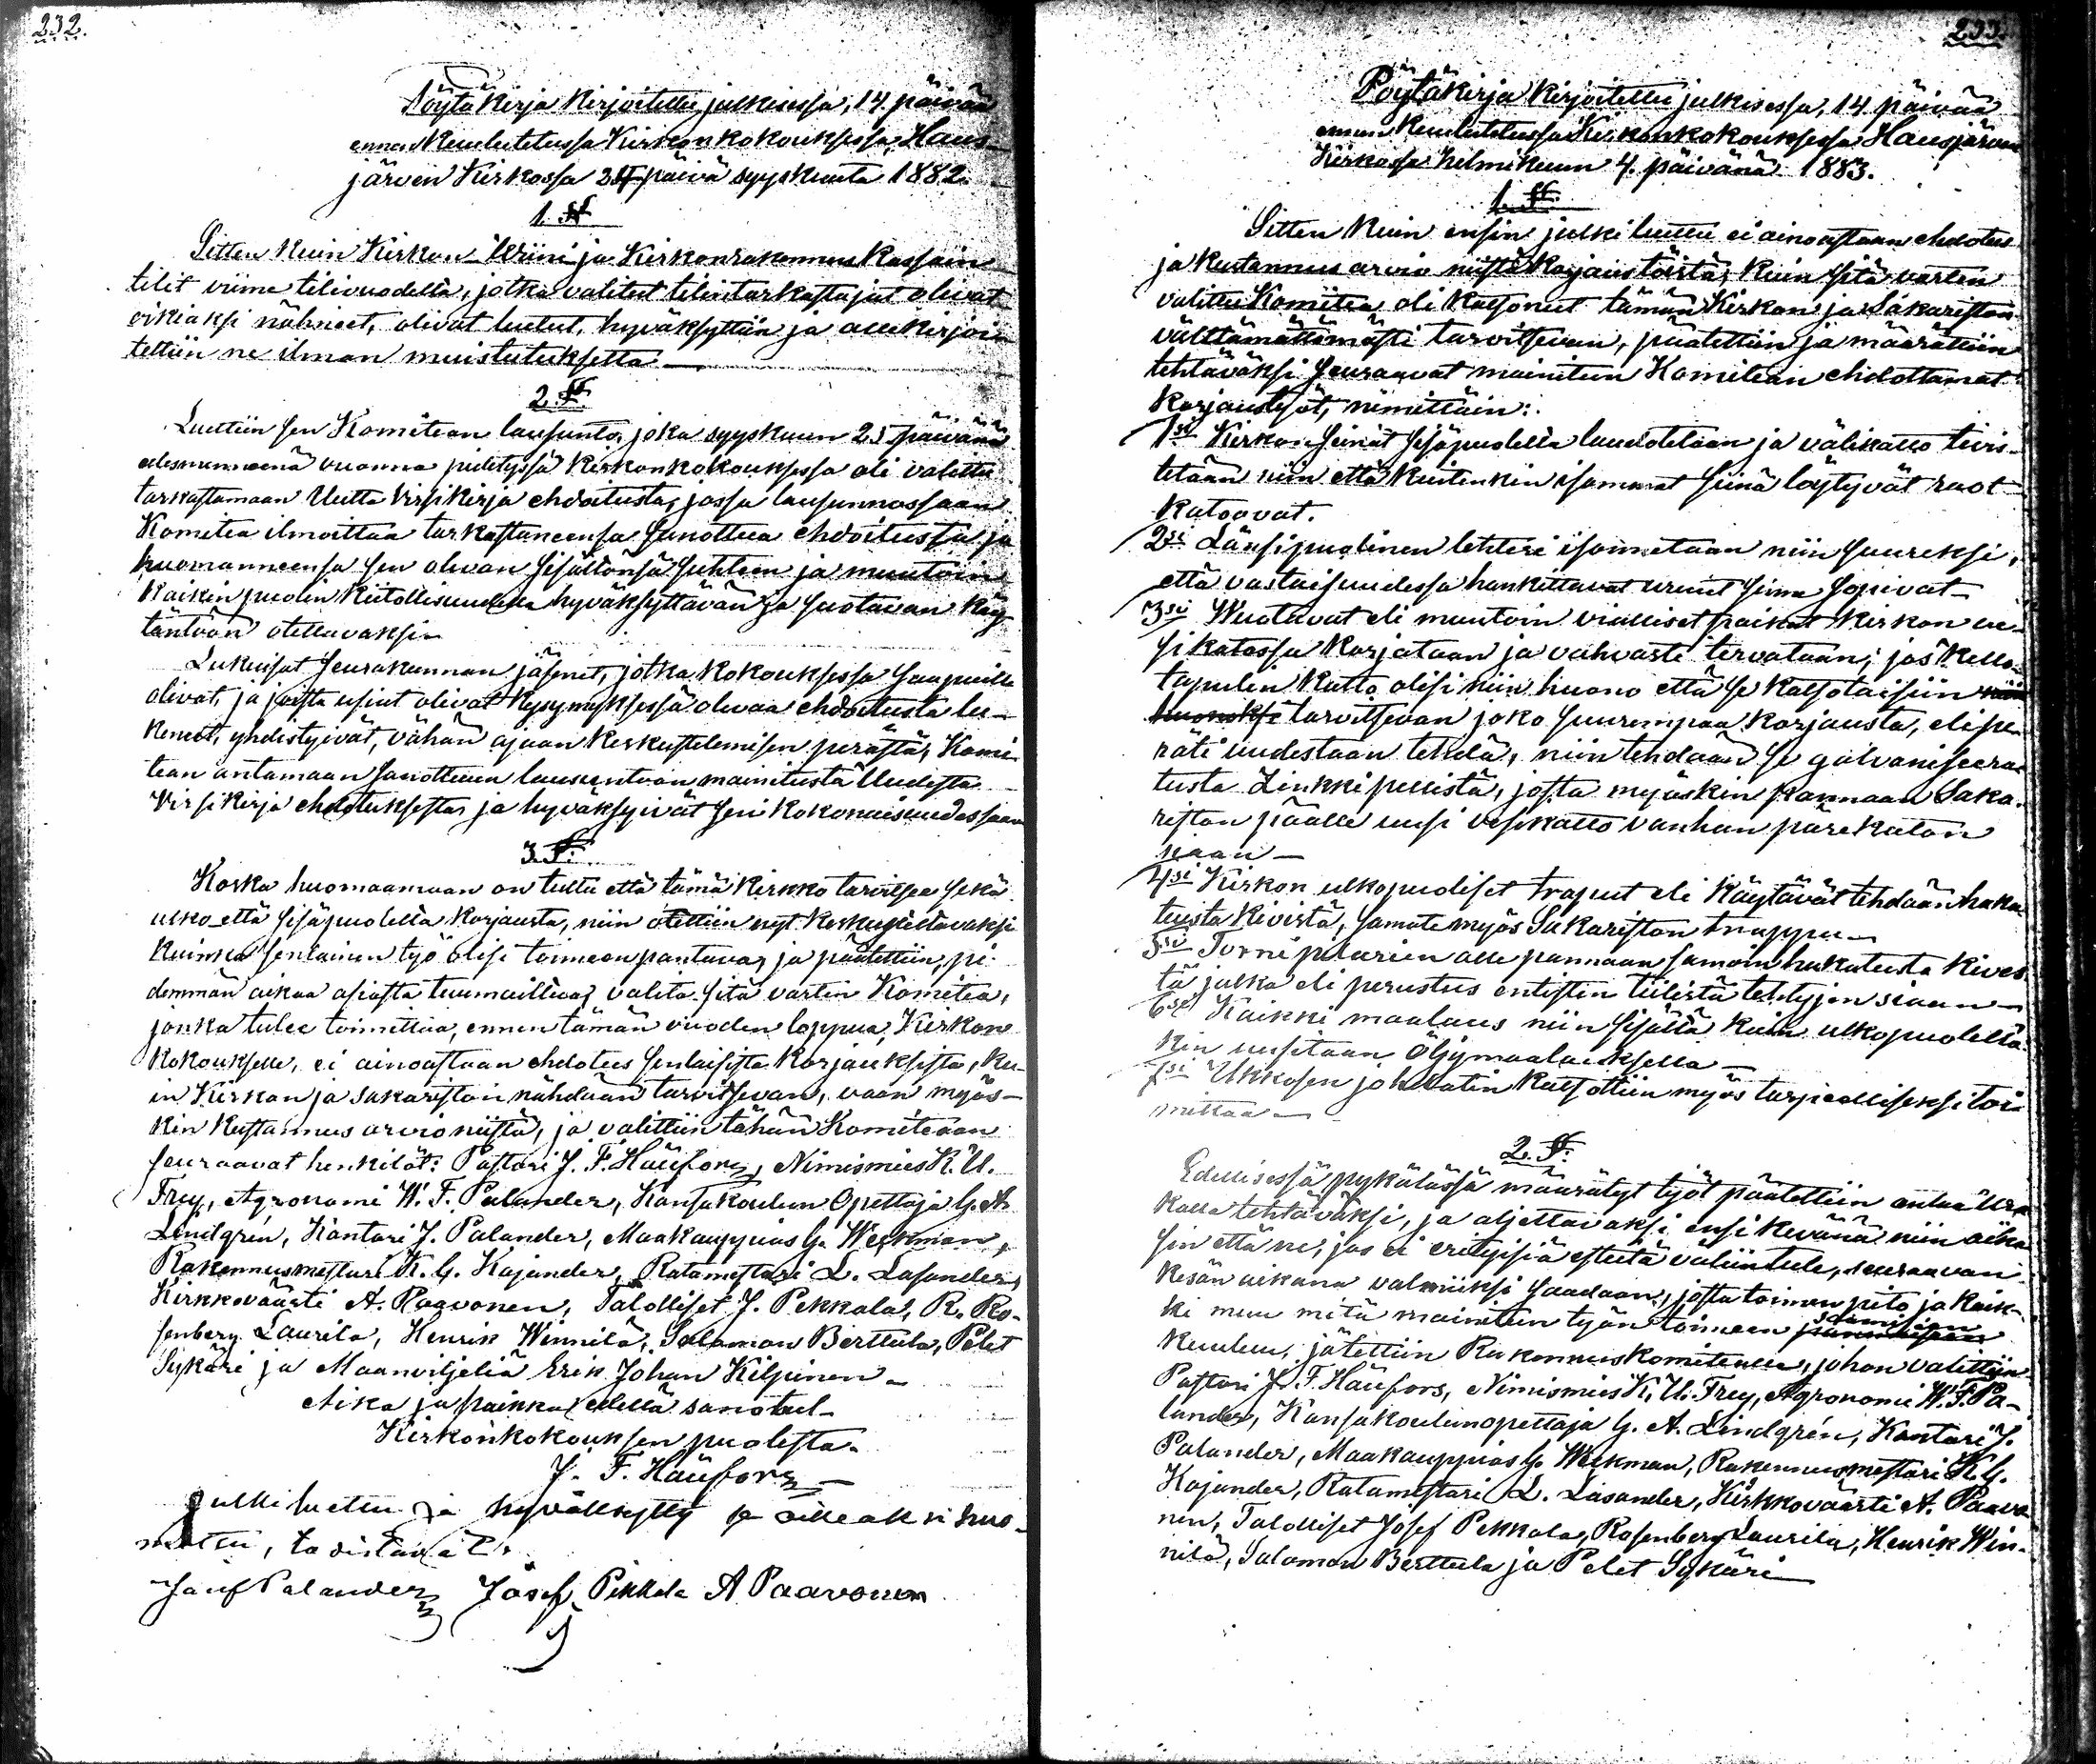 232.
Pöytäkirja kirjoitettu julkisessa, 14. päivää
ennen kuulutetussa Kirkonkokouksessa Haus-
järven Kirkossa päivä syyskuuta 1882.
1. §
Sitten kuin Kirkon- Wiini ja Kirkonrakennus Kassain
tilit viime tilivuodelta, jotka valitut tilintarkastajat olivat
oikiaksi nähneet, olivat luetut, hyväksyttiin ja allekirjoi-
tettiin ne ilman muistutuksetta —
2. §.
Luettiin sen Komitean lausunto, joka syyskuun 25 päivänä
edesmenneenä vuonna pidetyssä Kirkonkokouksessa oli valittu
tarkastamaan Uutta Virsikirja ehdoitusta, jossa lausunnossaan
Komitea ilmoittaa tarkastaneensa sanottua ehdoitusta ja
huomanneensa sen olevan sisältönsä suhteen ja muutoin
kaikin puolin kiitollisuudella hyväksyttävän ja suotavan käy-
täntöön otettavaksi—
Lukuisat seurakunnan jäsenet, jotka kokouksessa saapuilla
olivat, ja joista usiat olivat kysymyksessä olevaa ehdoitusta lu-
keneet, yhdistyivät, vähän ajaan keskustelemisen perästä, Komi-
tean antamaan sanottuun lausuntoon mainitusta Uudesta
Virsikirja ehdotuksesta, ja hyväksyivät sen kokonaisuudessaan
3. §.
Koska huomaamaan on tultu että tämä kirkko tarvitsee sekä
ulko- että sisäpuolella korjausta, niin otettiin nyt keskusteltavaksi
kuinka senlainen työ olisi toimeen pantava, ja päätettiin, pi-
demmän aikaa asiasta tuumailtua, valita sitä varten Komitea,
jonka tulee toimittaa, ennen tämän vuoden loppua, Kirkon-
kokoukselle, ei ainoastaan ehdotus senlaisista korjauksista, ku-
in Kirkon ja sakariston nähdään tarvitsevan, vaan myös-
kin kustannus arvio niistä, ja valittiin tähän Komiteaan
seuraavat henkilöt: Pastori J. F. Häufors, Nimismies K. U.
Frey, Agronomi W. F. Palander, Kansakoulun Opettaja G. A.
Lindgrén, Kantori J. Palander, Maakauppias G. Weckman,
Rakennusmestari K. G. Kajander, Ratamestari L. Lasander,
Kirkkoväärti A. Paavonen, Talolliset J. Pekkala, R. Ro-
senberg Laurila, Henrik Winnilä, Salamon Berttula, Pelet
Sykäri ja Maanviljeliä Erik Johan Kilpinen—
Aika ja paikka edellä sanotut—
Kirkonkokouksen puolesta.
J. F. Häufors—
Julki luettu ja hyväksytty ja oikeaksi huo-
mattu, todistavat.
Josef Pekkala A Paavonen
233.
Pöytäkirja kirjoitettu julkisessa, 14 päivää
ennen kuulutetussa Kirkonkokouksessa Hausjärven
Kirkossa helmikuun 4. päivänä 1883.
1. §.
Sitten kuin ensin julki luettu ei ainoastaan ehdotus
ja kustannus arvio niistä korjaus töistä, kuin sitä varten
valittu Komitea oli katsonut tämän Kirkon ja Sakariston
välttämättömästi tarvitsevan, päätettiin ja määrättiin
tehtäväksi seuraavat mainitun Komitean ehdottamat
korjaustyöt, nimittäin:
1si Kirkon seinät sisäpuolella laudotetaan ja välikatto tivis-
tetään niin että kuitenkin isommat siinä löytyvät raot
katoavat.
2si Länsipuolinen lehteri isonnetaan niin suureksi,
että vastaisuudessa hankittavat urut sinne sopivat—
3si Wuotavat eli muutoin vialliset paikat kirkon ve-
sikatossa korjataan ja vahvasti tervataan; jos kello-
tapulin katto olisi niin huono että se katsotaisiin niin
huonoksi tarvitsevan joko suurempaa korjausta, eli pe-
räti uudestaan tehdä, niin tehdään se galvaniseera-
tusta Zinkki pellistä, josta myöskin pannaan Saka-
riston päälle uusi vesikatto vanhan pärekaton
siaan—
4si Kirkon ulkopuoliset traput eli käytävät tehdään haka-
tuista kivistä, samate myös Sakariston trappu—
5si Torni pilarien alle pannaan samoin hakatusta kives-
tä jalka eli perustus entisten tiilistä tehtyjen siaan—
6si Kaikki maalaus niin sisällä kuin ulkopuolella-
kin uusitaan Öljymaalauksella—
7si Ukkosen johdatin katsottiin myös tarpeelliseksi toi-
mittaa—
2. §.
Edellisessä pykälässä määrätyt työt päätettiin antaa Ura-
kalla tehtäväksi, ja aljettavaksi ensi kevänä niin aika-
sin että ne, jos ei erityisiä esteitä väliintule, seuraavan
kesän aikana valmiiksi saadaan, josta toimen pito ja kaik-
ki muu mitä mainitun työn toimeen saamiseen
kuuluu, jätettiin Rakennuskomitealle, johon valittiin
Pastori J. F. Häufors, Nimismies K. U. Frey, Agronomi W. F. Pa-
lander, Kansakoulunopettaja G. A. Lindgrén, Kantori J.
Palander, Maakauppias G. Weckman, Rakennusmestari K. G.
Kajander, Ratamestari L. Lasander, Kirkkoväärti A. Paavo-
nen, Talolliset Josef Pekkala, Rosenberg Laurila, Henrik Win-
nilä, Salomon Berttula ja Pelet Sykäri—